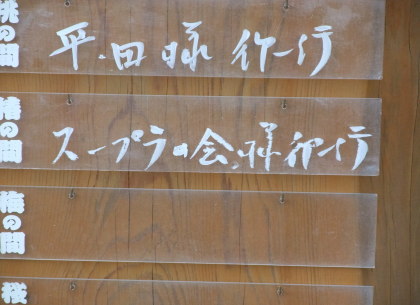 桃の間 平田様御一行
椿の間 スープラの会様御一行
梅の間
桜